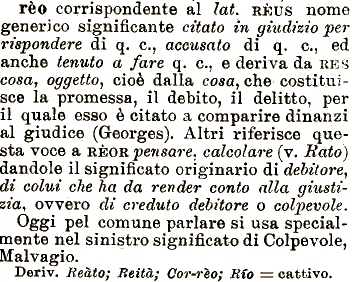 rèo corrispondente al lat. RÈUS nome
generico significante citato in giudizio per
rispondere di q. c., accusato di q. c., ed
anche tenuto a fare q. c., e deriva da RES
cosa, oggetto, cioè dalla cosa, che costitui-
sce la promessa, il debito, il delitto, per
il quale esso è citato a comparire dinanzi
al giudice (Georges). Altri riferisce que-
sta voce a RÈOR pensare, calcolare (v. Rato)
dandole il significato originario di debitore,
di colui che ha da render conto alla giusti-
zia, ovvero di creduto debitore o colpevole.
Oggi pel comune parlare si usa special-
mente nel sinistro significato di Colpevole,
Malvagio.
Deriv. Reàto; Reità; Cor-rèo; Río = cattivo.